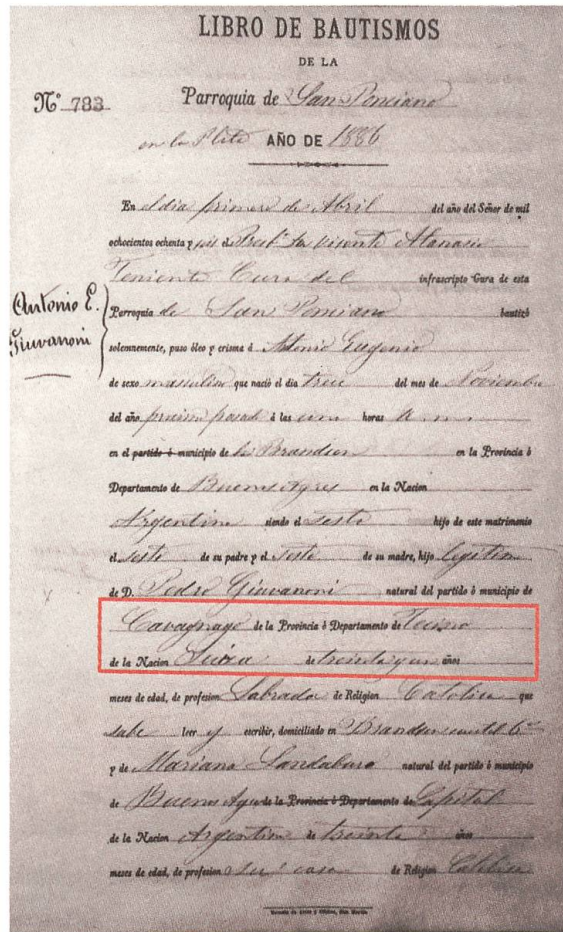 LIBRO DE BAUTISMOS
DE LA
Nº 783
Parroquia de San Ponciano
en la Plata AÑO DE 1886
En el dia primero de Abril del año del Señor de mil
ochocientos ochenta y seis el Presb. Vicente Atanasio
Teniente Cura del infrascripto Cura de esta
Antonio E.
Giuvanoni
Parroquia de San Ponciano bautizó
solemnemente, puso óleo y crisma á Antonio Eugenio
de sexo masculino que nació el dia trece del mes de Noviembre
del año proximo pasado á las una horas a m
en el partido ó municipio de Brandsen en la Provincia ó
Departamento de Buenos Ayres en la Nacion
Argentina siendo el sesto hijo de este matrimonio
el sesto de su padre y el sesto de su madre, hijo legitimo
de D. Pedro Giuvanoni natural del partido ó municipio de
Cavagnago de la Provincia ó Departamento de Tecino
de la Nacion Suiza de treinta y un años
meses de edad, de profesion Labrador de Religion Catolica que
sabe leer y escribir, domiciliado en Brandsen cuartel 6º
y de Mariana Landaburo natural del partido ó municipio
de Buenos Ayres de la Provincia ó Departamento de Capital
de la Nacion Argentina de treinta años
meses de edad, de profesion su casa de Religion Catolica